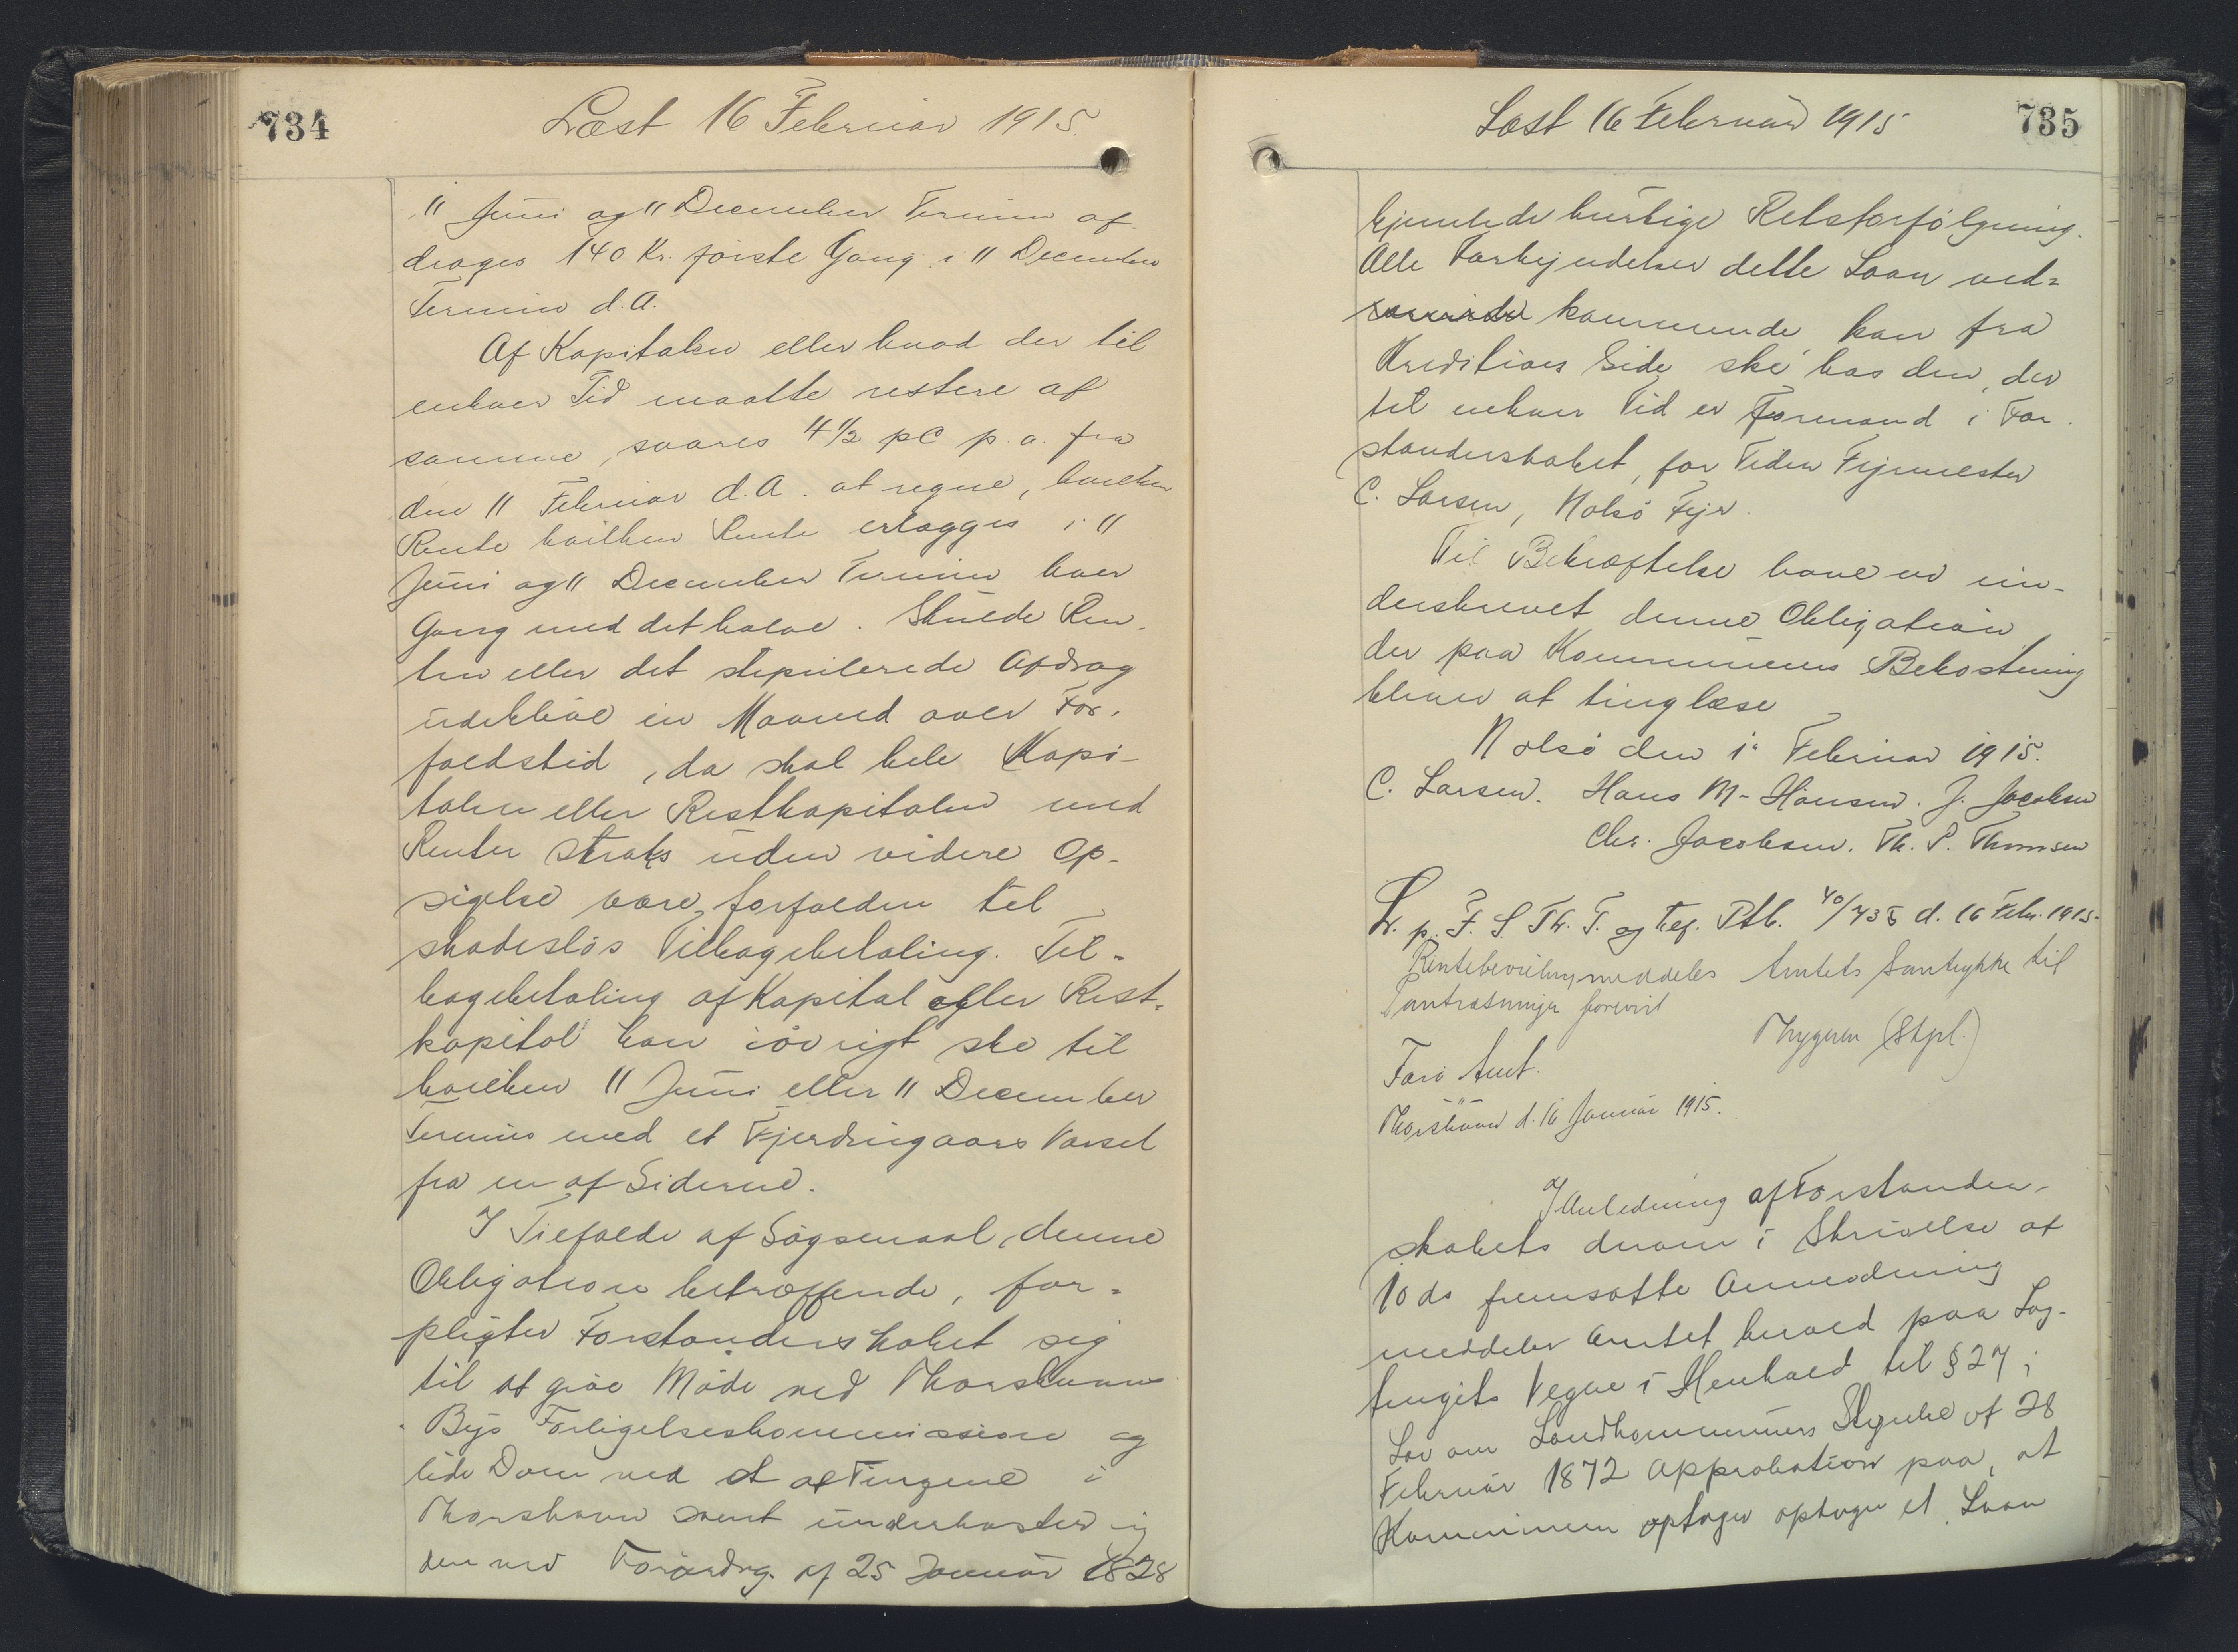 734
Læst 16 Februar 1915.
11 Juni og 11 December Termin af-
drages 140 Kr. første Gang i 11 December
Termin d.A.
Af Kapitalen eller hvad der til
enhver Tid maatte restere af
samme, svares 4½ pC p.a. fra
den 11 Februar d.A. at regne, hvilken
Rente hvilken Rente erlægges i 11
Juni og 11 December Termin hver
Gang med det halve. Skulde Ren-
ten eller det stipulerede Afdrag
udeblive en Maaned over For-
faldstid, da skal hele Kapi-
talen eller Restkapitalen med
Renter straks uden videre Op-
sigelse være forfalden til
skadesløs Tilbagebetaling. Til-
bagebetaling af Kapital eller Rest-
kapital kan iøvrigt ske til
hvilken 11 Juni eller 11 December
Termin med et Fjerdingaars Varsel
fra en af Siderne.
I Tilfælde af Søgsmaal, denne
Obligation betræffende, for-
pligter Forstanderskabet sig
til at give Møde ved Thorshavns
Bys Forligelseskommission og
lide Dom ved et af Tingene i
Thorshavn samt underkaster sig
den ved Forordng. af 25 Januar 1828
735
Læst 16 Februar 1915
hjemlede hurtige Retsforfølgning.
Alle Forkyndelser dette Laan ved-
kommende kan fra
Kreditors Side ske hos den, der
til enhver Tid er Formand i For-
standerskabet, for Tiden Fyrmester
C. Larsen, Nolsø Fyr.
Til Bekræftelse have vi un-
derskrevet denne Obligation
der paa Kommunens Bekostning
bliver at tinglæse
Nolsø den 1' Februar 1915.
C. Larsen. Hans M. Hansen. J. Jacobsen
Chr. Jacobsen. Th. P. Thomsen
L. p. F. S. Th. T. og ref. Ptb. 40/735 d. 16 Febr. 1915.
meddeles Amtets Samtykke til
Pantsætningen forevist
(Stpl.)
Færø Amt.
Thorshavn d. 16 Januar 1915.
I Anledning af Forstander-
skabets derom i Skrivelse af
10 ds fremsatte Anmodning
meddeler Amtet herved paa Lag-
tingets Vegne i Henhold til § 27 i
Lov om Landkommuners Styrelse af 28
Februar 1872 Approbation paa, at
Kommunen optager optager et Laan